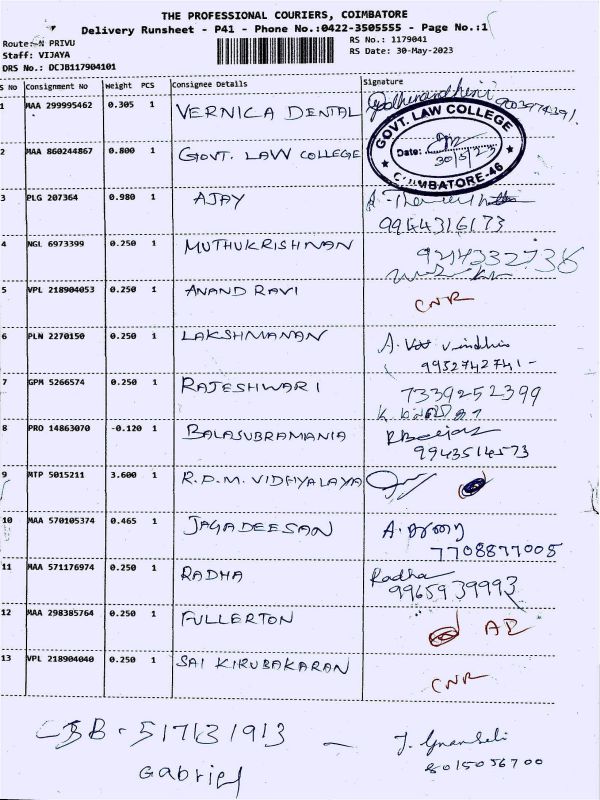 THE PROFESSIONAL COURIERS, COIMBATORE
Delivery Runsheet - P41 - Phone No.:0422-3505555 - Page No.:1
Route:- N PRIVU
RS No.: 1179041
Staff: VIJAYA
RS Date: 30-May-2023
DRS No.: DCJB117904101
S No Consignment No Weight PCS Consignee Details Signature
1 MAA 299995462 0.305 1 VERNICA DENTAL
2 MAA 860244867 0.800 1 GOVT. LAW COLLEGE
GOVT. LAW COLLEGE
Date: 30/5/23
COIMBATORE-46
3 PLG 207364 0.980 1 AJAY
9944316173
4 NGL 6973399 0.250 1 MUTHUKRISHNAN
5 VPL 218904053 0.250 1 ANAND RAVI CNR
6 PLN 2270150 0.250 1 LAKSHMANAN
9952742741 -
7 GPM 5266574 0.250 1 RAJESHWARI 7339252399
8 PRO 14863070 -0.120 1 BALASUBRAMANIA
9943514573
9 MTP 5015211 3.600 1 R.D.M. VIDHYALAYA
10 MAA 570105374 0.465 1 JAGADEESAN
7708877005
11 MAA 571176974 0.250 1 RADHA Radha
9965939993
12 MAA 298385764 0.250 1 FULLERTON
13 VPL 218904040 0.250 1 SAI KIRUBAKARAN CNR
Gabriel
8015056700